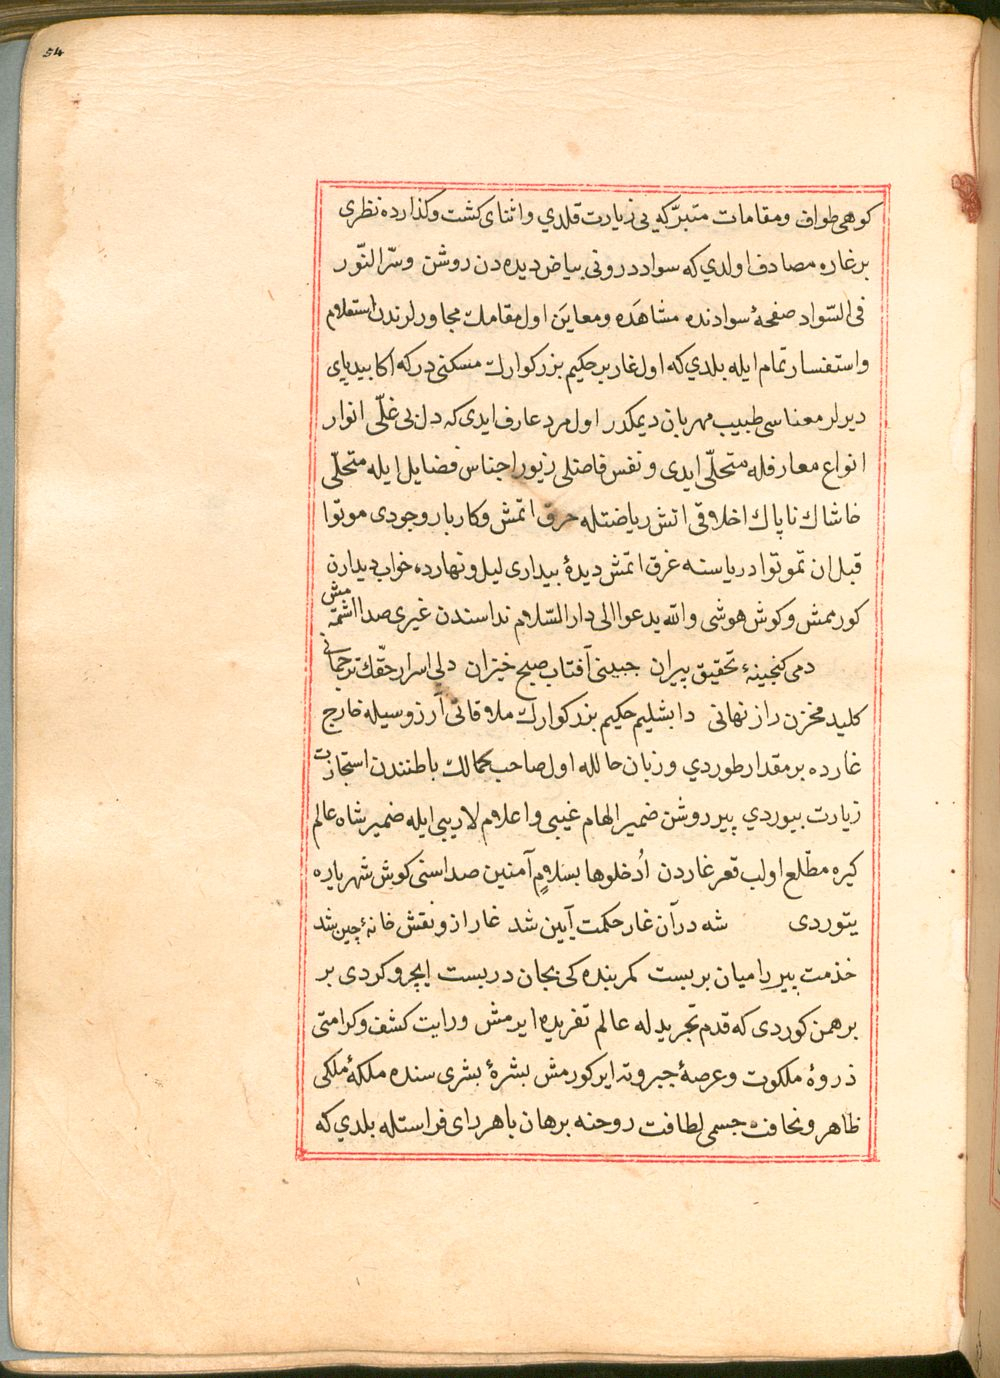 54
كوهی طواف ومقامات متبرّكه یی زیارت قلدي واثنای كشت وكذارده نظری
بر غاره مصادف اولدي كه سواد درونی بیاض دیده دن روشن وسرّ النّور
فی السّواد صفحۀ سوادنده مشاهَده ومعاینَ اول مقامك مجاورلرندن استعلام
واستفسار تمام ایله بلدي كه اول غار بر حكیم بزركوارك مسكنی در كه اكا بیدپای
دیرلر معناسی طبیب مهربان دیمكدر اول مرد عارف ایدی كه دل بی غلّی انوار
انواع معارفله متجلّی ایدی ونفس فاضلی زیور اجناس فضایل ایله متحلّی
خاشاك ناپاك اخلاقی اتش ریاضتله حرق اتمش وكاربار وجودی موتوا
قبل ان تموتوا دریاسنه غرق اتمش دیدۀ بیداری لیل ونهارده خواب دیدارن
كورممش وكوش هوشی والله یدعوا الی دار السّلام نداسندن غیری صدا اشتمه مش
دمی كنجینۀ تحقیق پیران جبینی آفتاب صبح خیزان دلی اسرار حقّك ترجمانی
كلید مخزن راز نهانی دابشلیم حكیم بزركوارك ملاقاتی آرزوسیله خارج
غارده بر مقدار طوردي وزبان حالله اول صاحب كمالك باطنندن استجازت
زیارت بیوردي پیر روشن ضمیر الهام غیبی واعلام لاریبی ایله ضمیر شاه عالم
كیره مطّلع اولب قعر غاردن اُدخلوها بسَلامٍ آمنین صداسنی كوش شهریاره
یتوردی شه در آن غار حكمت آیین شد غار ازو نقش خانۀ چین شد
خذمت پیر را میان بربست كمر بنده كی بجان دربست ایچرو كردی بر
برهمن كوردی كه قدم تجریدله عالم تفریده ایرمش ورایت كشف وكرامتی
ذروۀ ملكوت وعرصۀ جبروته ایركورمش بشرۀ بشری سنده ملكۀ ملكی
ظاهر ونحافت جسمی لطافت روحنه برهان باهر رای فراستله بلدي كه